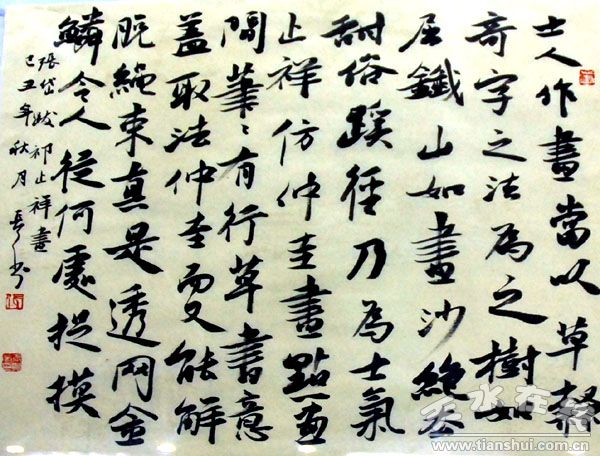 士人作畫當以草隸
奇字之法為之樹如
屈鐵山如畫沙絕去
甜俗蹊徑乃為士氣
止祥仿仲圭畫點畫
間筆〻有行草書意
蓋取法仲圭而又能解
脫繩束真是透网金
鱗令人從何處捉摸
張岱跋祁止祥畫
己丑年秋月
天水在线
www.tianshui.com.cn